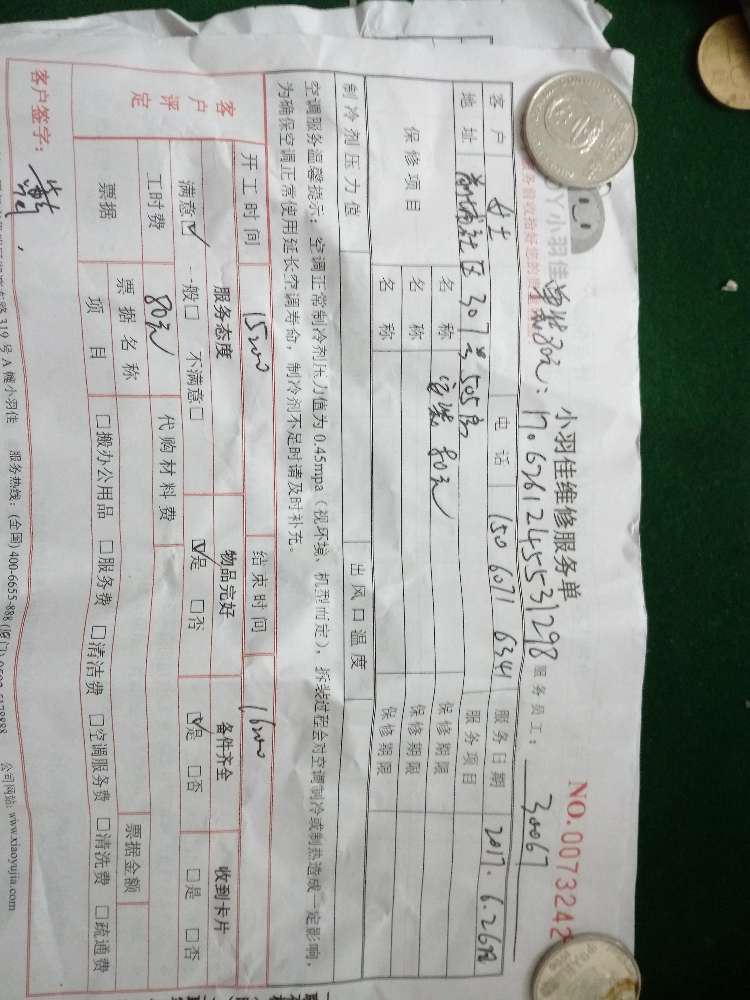 小羽佳维修服务单
NO.0073242
17.6261245531298 服务员工： 30067
客户 女士 电话 150 6071 6341 服务日期 2017.6.26
地址 社区307 505 服务项目
保修项目 名称 安装 80元 保修期限
名称 保修期限
名称 保修期限
制冷剂压力值 出风口温度
空调服务温馨提示：空调正常制冷剂压力值为0.45mpa（视环境、机型而定），拆装过程会对空调制冷或制热造成一定影响，
为确保空调正常使用延长空调寿命，制冷剂不足时请及时补充。
开工时间 15:00 结束时间 16:00
客户评定 服务态度 物品完好 备件齐全 收到卡片
满意☑ 一般□ 不满意□ ☑是 □否 ☑是 □否 □是 □否
工时费 80元 代购材料费
票据 票据名称 票据金额
项目 □搬办公用品 □服务费 □清洁费 □空调服务费 □清洗费 □疏通费
客户签字：
319号A幢小羽佳 服务热线：(全国) 400-6655-888 公司网站: www.xiaoyujia.com